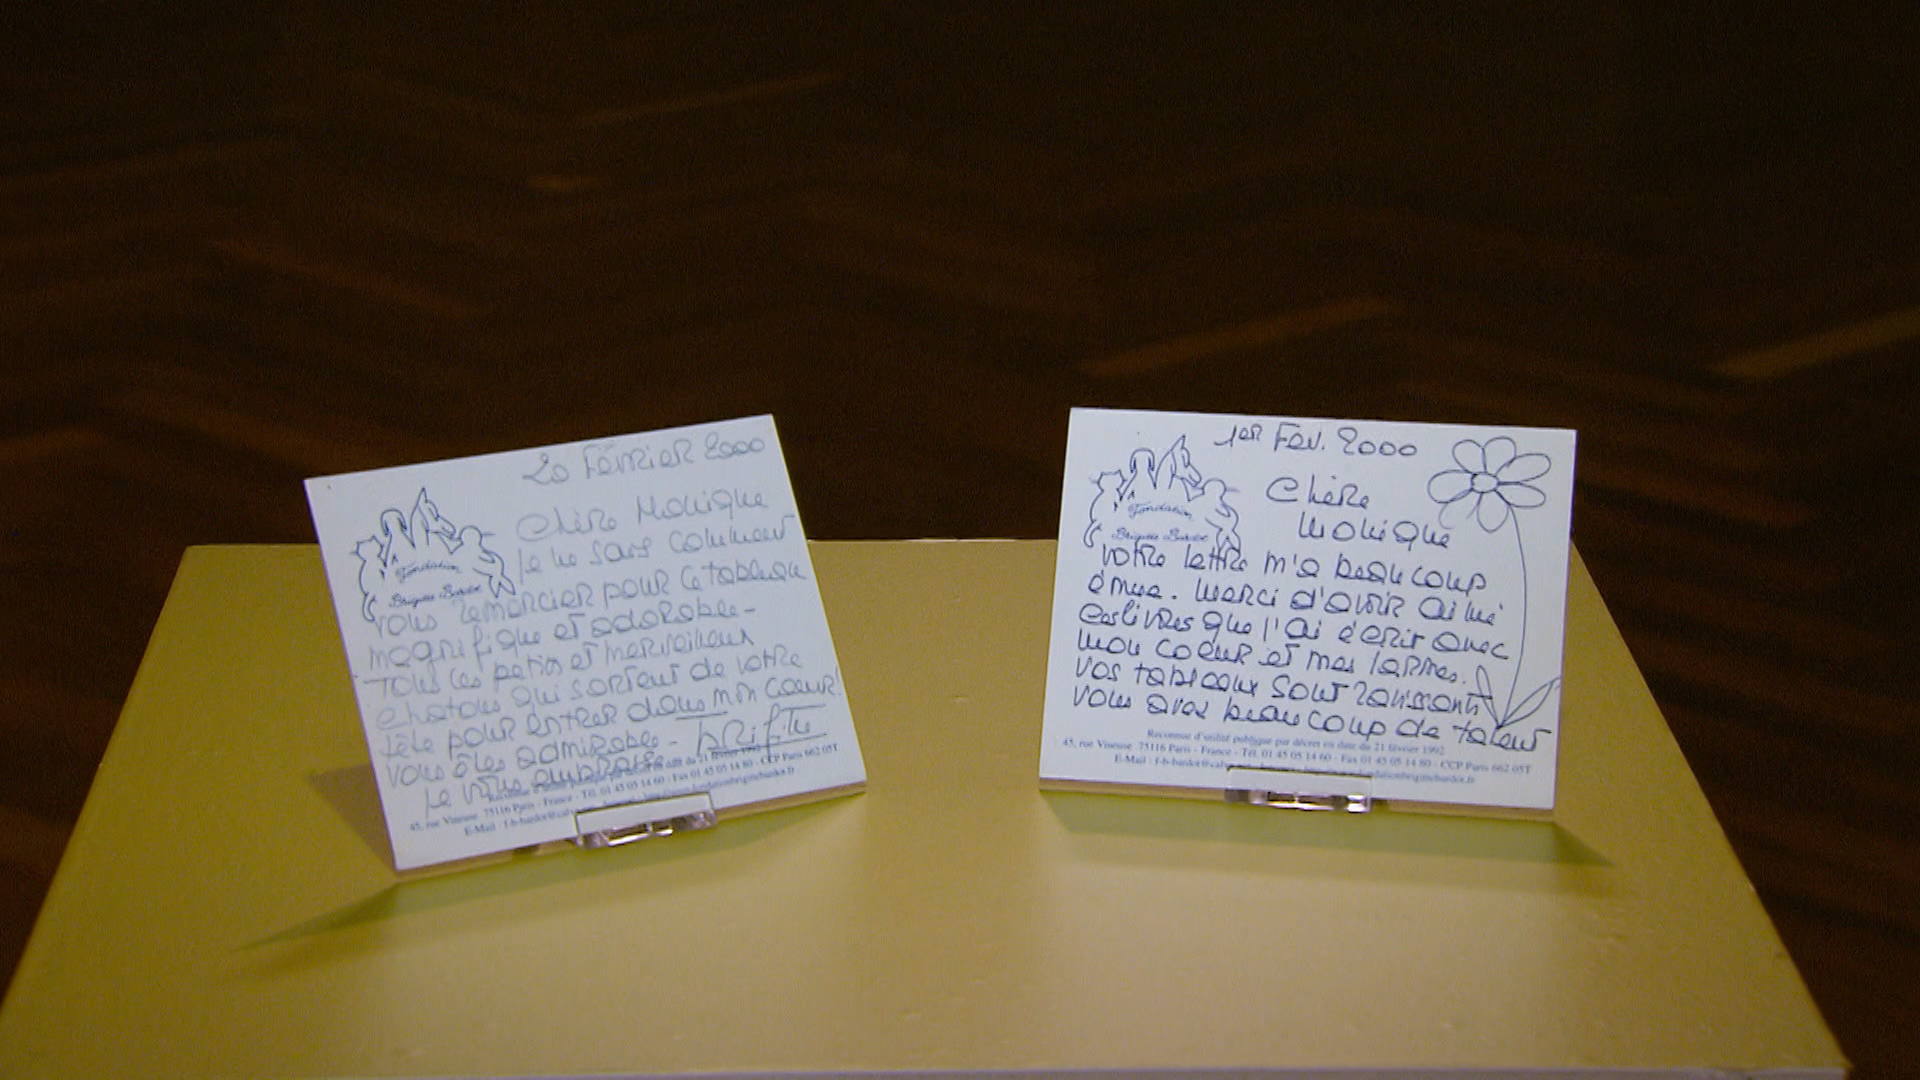 20 Février 2000
Chère Monique
je ne sais comment
Fondation
Brigitte Bardot
vous remercier pour ce tableau
magnifique et adorable -
Tous ces petits et merveilleux
chatons qui sortent de votre
tête pour entrer dans mon coeur!
vous êtes admirable -
je vous embrasse
février 1992
Reconnue d'utilité du 21
45, rue Vineuse 75116 Paris - France - Tél. 01 45 05 14 60 - Fax 01 45 05 14 80 - CCP Paris 662 05T
E-Mail : f-b-bardot@
1er Fev. 2000
Chère
Monique
Fondation
Brigitte Bardot
votre lettre m'a beaucoup
émue. Merci d'avoir aimé
ces livres que j'ai écrit avec
mon coeur et mes larmes.
vos tableaux sont ravissants
vous avez beaucoup de talent
Reconnue d'utilité publique par décret en date du 21 février 1992
45, rue Vineuse 75116 Paris - France - Tél. 01 45 05 14 60 - Fax 01 45 05 14 80 - CCP Paris 662 05T
E-Mail : f-b-bardot@